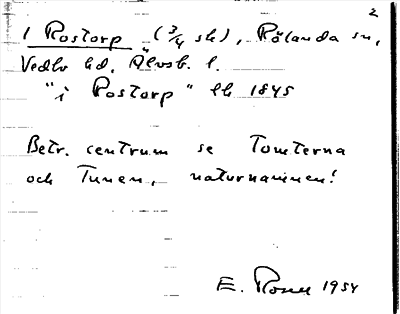 2
1 Rostorp (3/4 sk), Rölanda sn,
Vedbo hd. Älvsb. l.
"i Rostorp" lk 1845
Betr. centrum se Tomterna
och Tunen, naturnamnen!
E. Rosell 1954